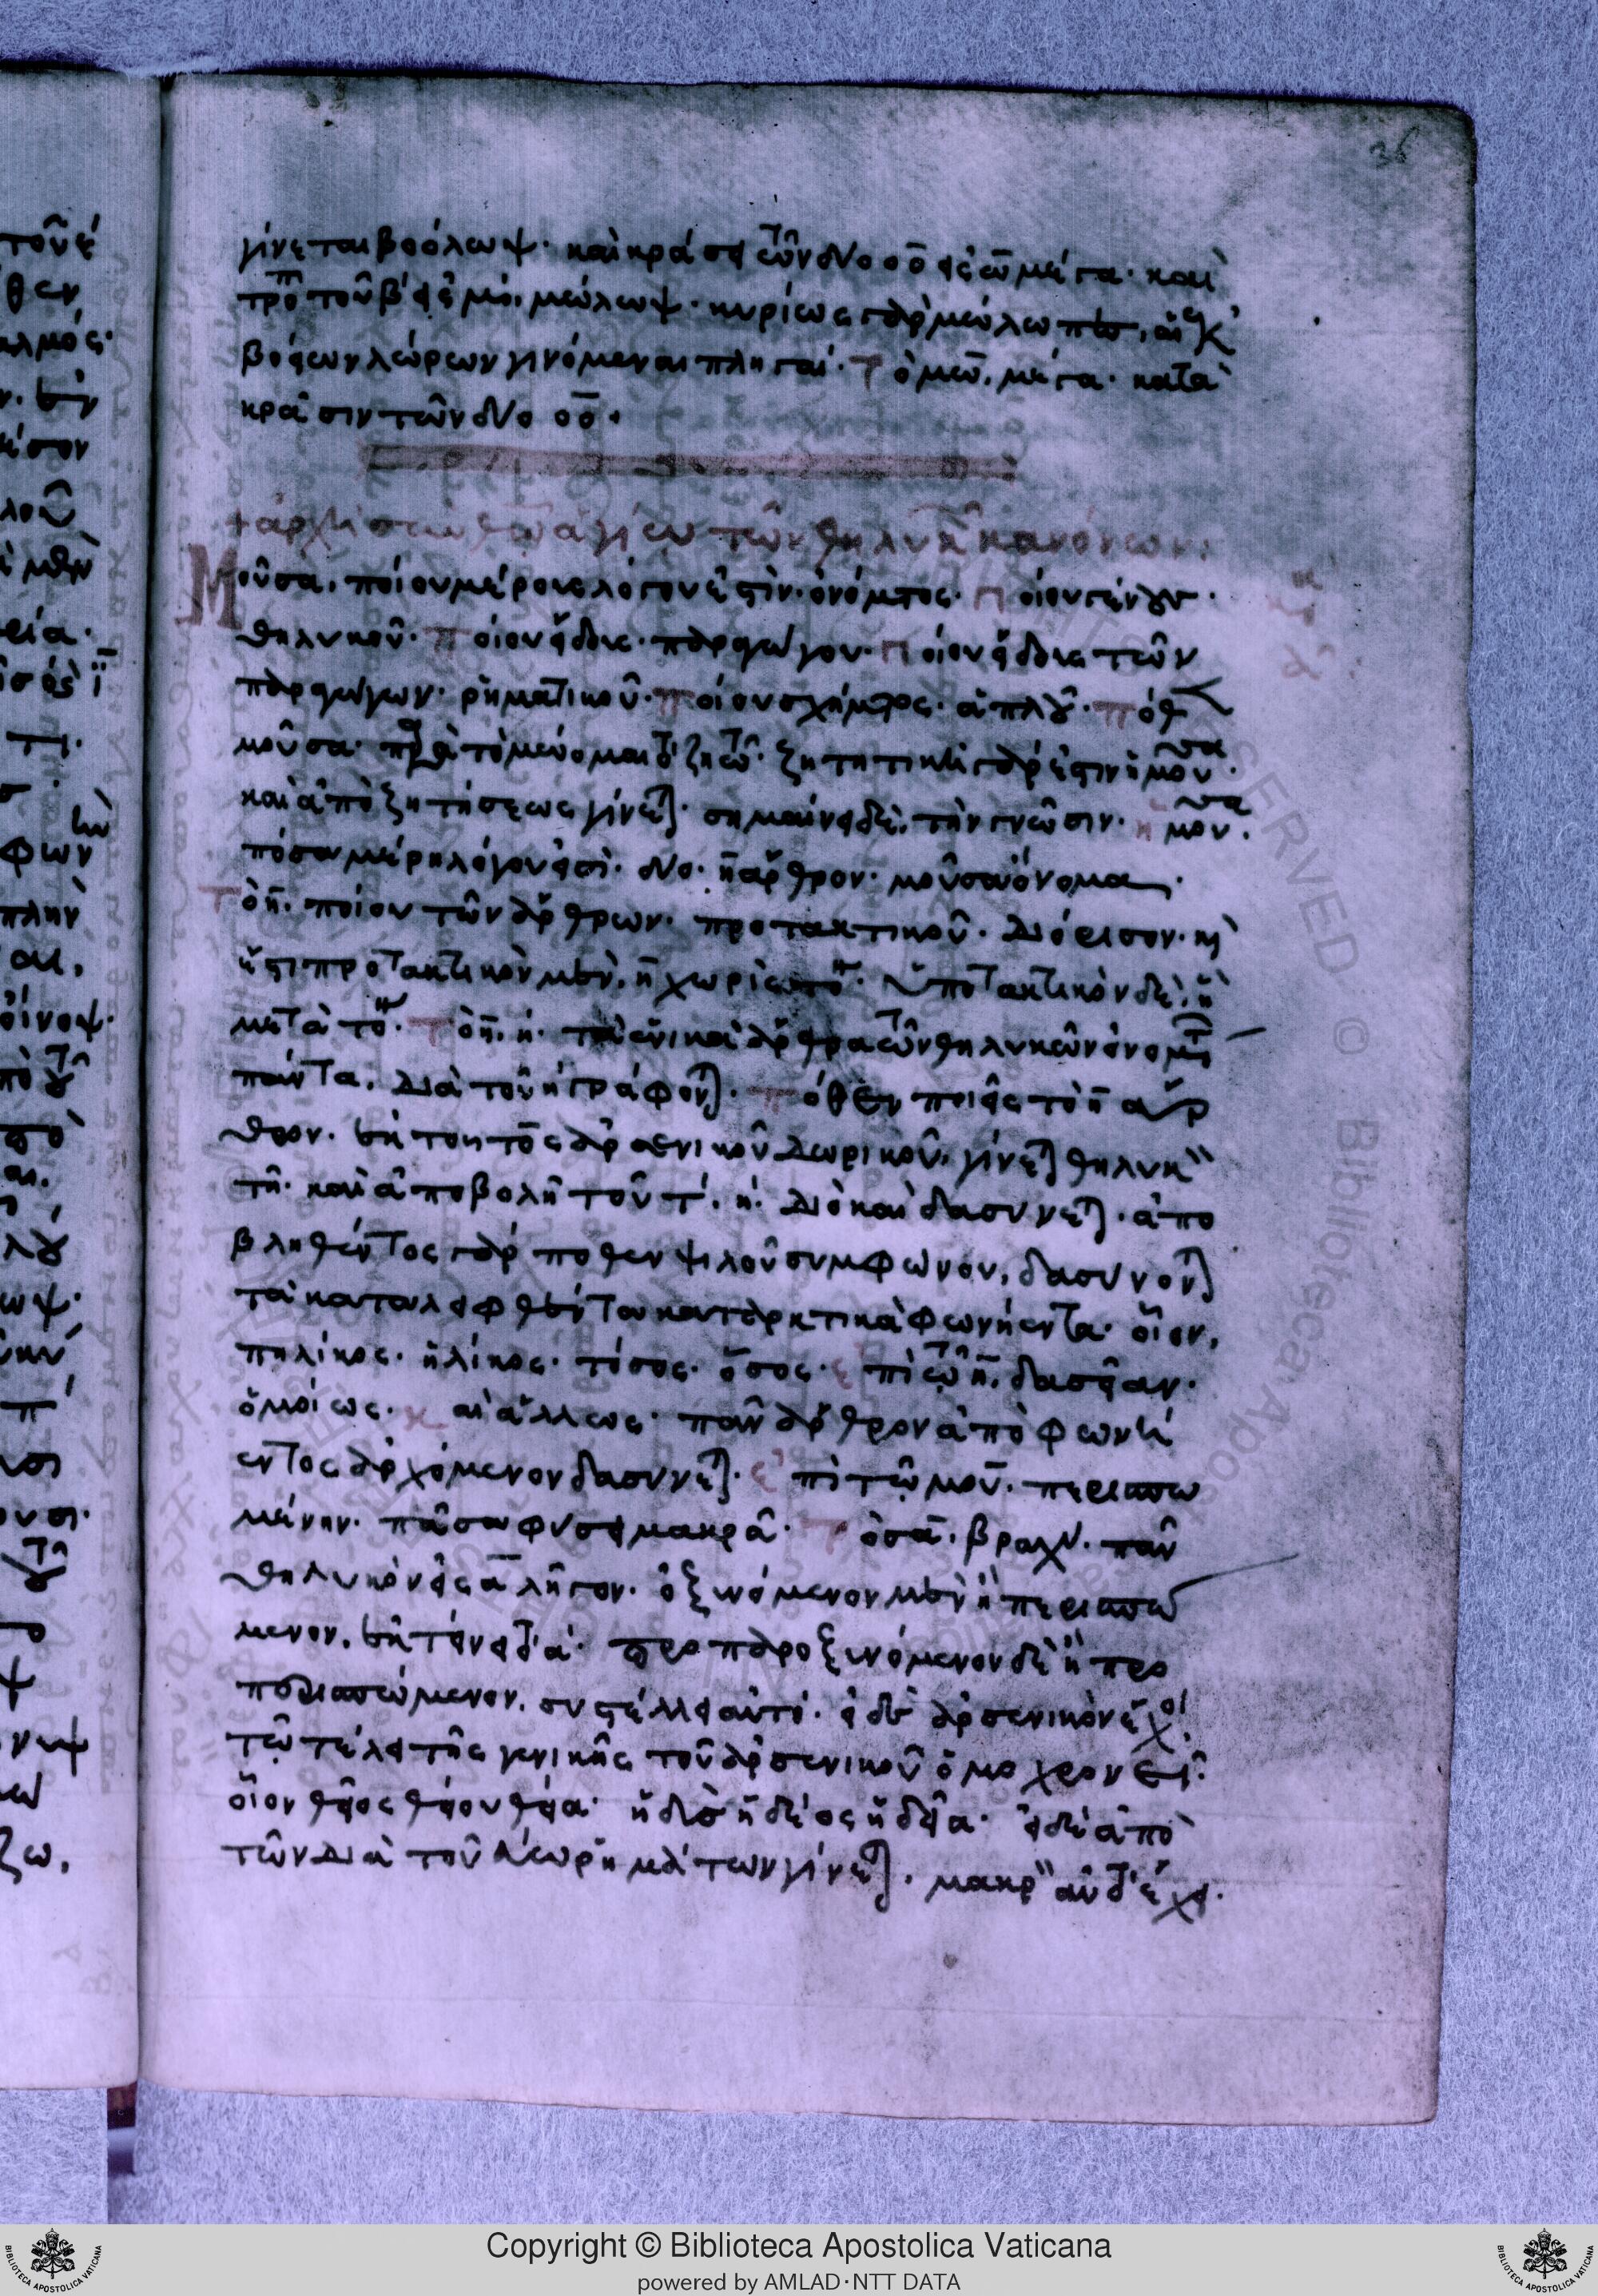 36
γίνεται βοόλωψ· καὶ κράσει τῶν δύο οο εἰς ω μέγα· καὶ
τροπῇ τοῦ β εἰς μ, μώλωψ· κυρίως γὰρ μώλωπες, αἱ ἐκ
βοείων λώρων γινόμεναι πληγαί· Τὸ μω, μέγα· κατὰ
κρᾶσιν τῶν δύο οο·
+ ἀρχὴ σὺν θεῷ ἁγίῳ τῶν θηλυκῶν κανόνων:
Μοῦσα, ποίου μέρους λόγου ἐστίν· ὀνόματος· Ποίου γένους·
θηλυκοῦ· Ποίου εἴδους· παραγώγου· Ποίου εἴδους τῶν
παραγώγων· ῥηματικοῦ· Ποίου σχήματος· ἁπλοῦ· Πόθεν
μοῦσα· παρὰ τὸ μεύομαι τὸ ζητῶ· ζητητικὴ γάρ ἐστιν ἡ μοῦσα·
καὶ ἀπὸ ζητήσεως γίνεται· σημαίνει δὲ, τὴν γνῶσιν· ἡ μοῦσα·
πόσα μέρη λόγου εἰσί· δύο· η ἄρθρον· μοῦσα ὄνομα·
Τὸ η· ποίου τῶν ἄρθρων· προτακτικοῦ· Διόρισον· καὶ
ἔστι προτακτικὸν μὲν, ἡ χωρὶς τόνου· ὑποτακτικὸν δὲ, ἥ
μετὰ τόνου· Τὸ η, η· τὰ ἑνικὰ ἄρθρα τῶν θηλυκῶν ὀνομάτων
πάντα, διὰ τοῦ η γράφονται· πόθεν ποιεῖς τὸ η ἄρ
θρον· ἐκ τοῦ τός ἀρσενικοῦ δωρικοῦ, γίνεται θηλυκὸν
τή· καὶ ἀποβολῇ τοῦ τ, η· διὸ καὶ δασύνεται· ἀπο
βληθέντος γάρ ποθεν ψιλοῦ συμφώνου, δασύνονται
τὰ καταλειφθέντα καταρκτικὰ φωνήεντα· οἷον,
πηλίκος· ἡλίκος· τόσος· ὅσος· ἐπὶ τῷ η, δασεῖαν·
ὁμοίως· καὶ ἄλλως· πᾶν ἄρθρον ἀπὸ φωνή
εντος ἀρχόμενον δασύνεται· ἐπὶ τῷ μου, περισπω
μένην· πᾶσα φύσει μακρά· Τὸ σα, βραχύ· πᾶν
θηλυκὸν εἰς α λῆγον· ὀξυνόμενον μὲν ἢ περισπώ
μενον, ἐκτείνει τὸ α· προπαροξυνόμενον δὲ ἢ προ
περισπώμενον, συστέλλει αὐτό· εἰ δὲ ἀρσενικὸν ἔχοι,
τῷ τέλει τῆς γενικῆς τοῦ ἀρσενικοῦ ὁμοχρονεῖ·
οἷον θεῖος θείου θεία· ἡδὺς ἡδέος ἡδεῖα· εἰ δὲ ἀπὸ
τῶν διὰ τοῦ εύω ῥημάτων γίνεται, μακρὸν αὐτὸ ἔχει·
Copyright © Biblioteca Apostolica Vaticana
powered by AMLAD·NTT DATA